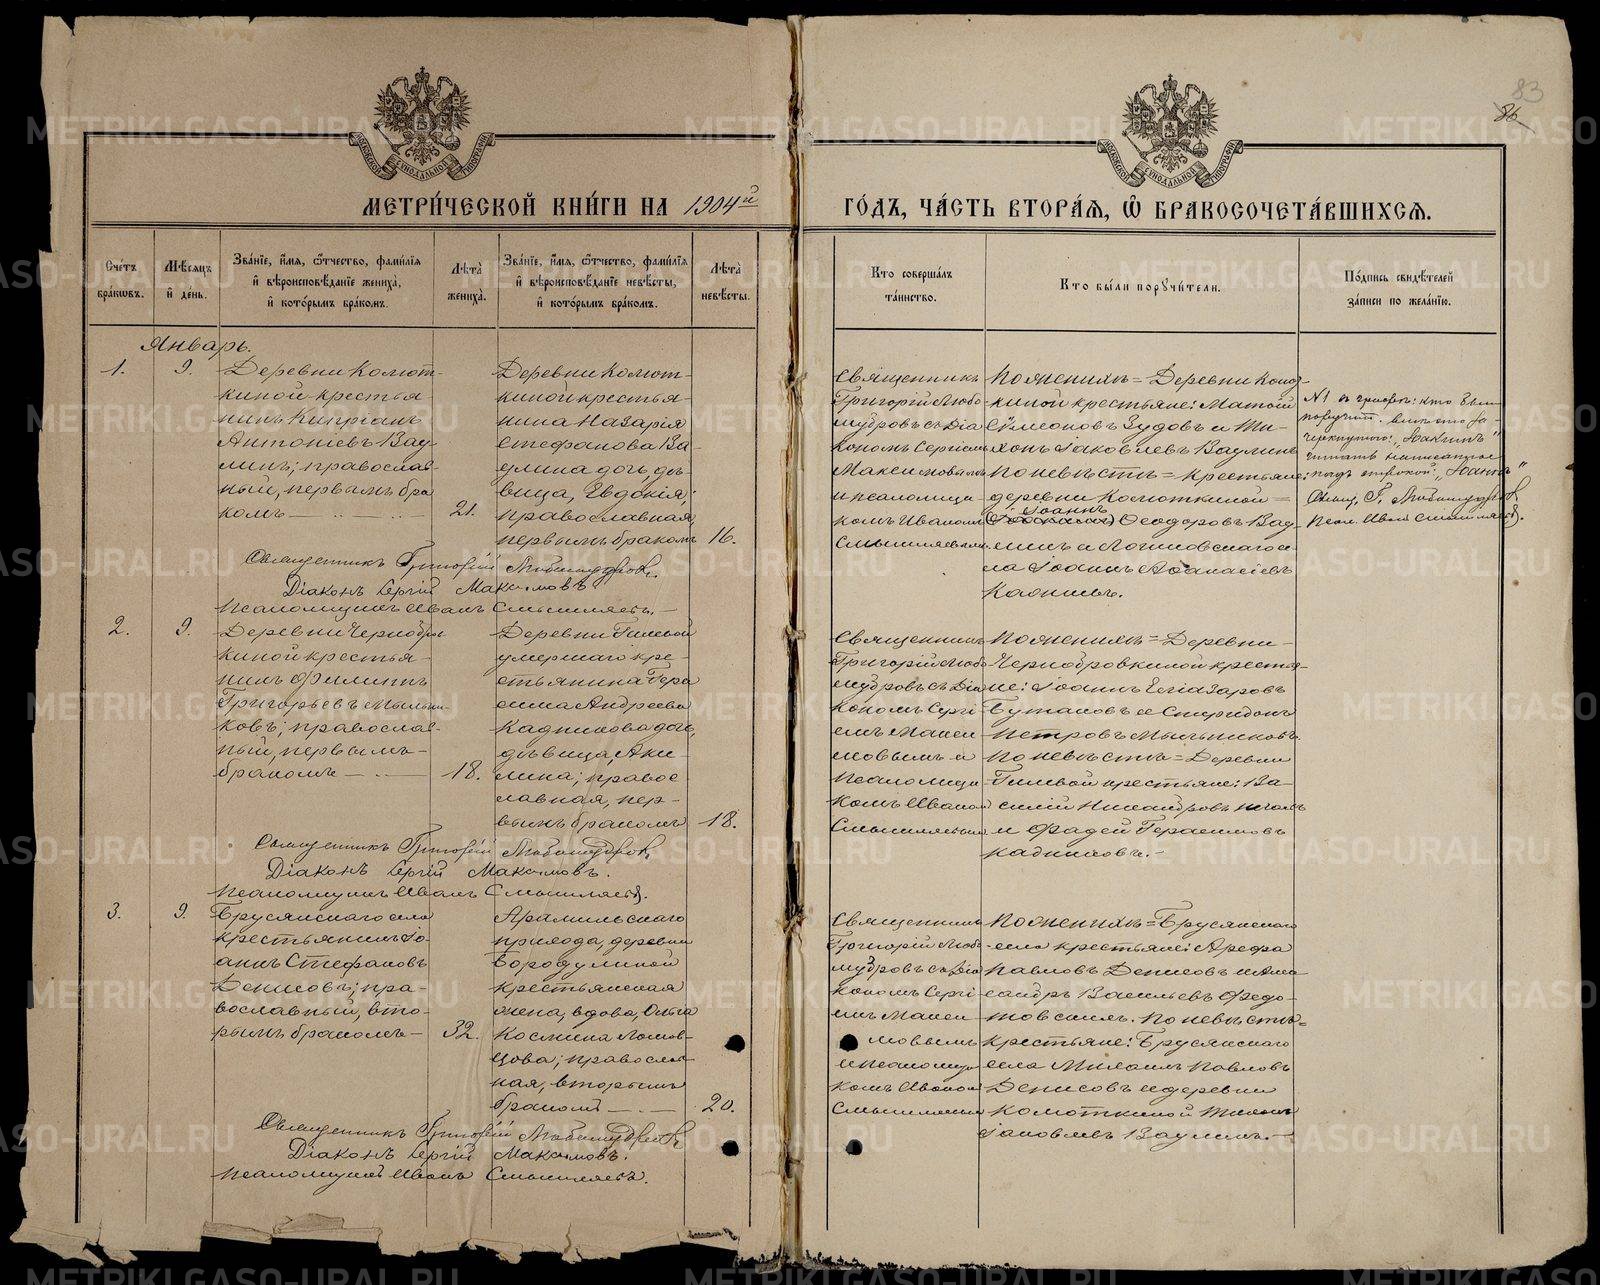 83
86
МЕТРИ́ЧЕСКОЙ КНИ́ГИ НА 1904й
ГО́ДЪ, ЧА́СТЬ ВТОРА́Я, Ѡ БРАКОСОЧЕТА́ВШИХСЯ.
Сче́тъ бра́ковъ.
Мѣ́сяцъ и҆ де́нь.
Зва́нїе, и҆́мя, ѻ҆́тчество, фами́лїя
и҆ вѣроисповѣ́данїе жениха̀,
и҆ кото́рымъ бра́комъ.
Лѣ́та жениха̀.
Зва́нїе, и҆́мя, ѻ҆́тчество, фами́лїя
и҆ вѣроисповѣ́данїе невѣ́сты,
и҆ кото́рымъ бра́комъ.
Лѣ́та невѣ́сты.
Кто соверша́лъ та́инство.
Кто бы́ли поручи́тели.
По́дпись свидѣ́телей за́писи по жела́нїю.
Январь.
1.
9.
Деревни Колют-
киной крестья-
нинъ Кипріанъ
Антоніевъ Вау-
линъ; православ-
ный, первымъ бра
комъ
21.
Деревни Колют-
киной крестья-
нина Назарія
Стефанова Ва
улина дочь, дѣ-
вица, Евдокія;
православная,
первымъ бракомъ
16.
Священникъ
Григорій Любо
мудровъ съ Діа
кономъ Сергіемъ
Максимовымъ
и псаломщи-
комъ Иваномъ
Смышляевымъ.
По женихѣ = Деревни Колют-
киной крестьяне: Матѳій
Сѵмеоновъ Зудовъ и Ти-
хонъ Іаковлевъ Ваулинъ
По невѣстѣ = крестьяне:
деревни Колюткиной =
Іоаннъ
Ѳеодоровъ Вау-
линъ и Логиновскаго се-
ла Іоаннъ Аѳанасіевъ
№ 1 въ графѣ: кто были
поручит. вмѣсто за-
черкнутого: „Іоакимъ"
читать написанное
надъ строкой: „Іоаннъ"
Свящ. Г. Любомудровъ
Псал. Иванъ Смышляевъ.
Священникъ Григорій Любомудровъ.
Діаконъ Сергій Максимовъ
Псаломщикъ Иванъ Смышляевъ.
2.
9.
Деревни Чернобров
киной крестья-
нинъ Филиппъ
Григорьевъ Мыльни-
ковъ; православ-
ный, первымъ-
бракомъ
18.
Деревни Гилевой
умершаго кре-
стьянина Гера
сима Андреева
Кадникова дочь,
дѣвица, Аки-
лина; правос
лавная, пер-
вымъ бракомъ
18.
Священникъ
Григорій Любо
мудровъ съ Діа
кономъ Сергі-
емъ Макси
мовымъ и
Псаломщи
комъ Иваном
Смышляевым
По женихѣ = Деревни
Чернобровкиной крестья-
не: Іоаннъ Елеазаровъ
Бутаковъ и Спиридонъ
Петровъ Мыльниковъ.
По невѣстѣ = Деревни
Гилевой крестьяне: Ва-
силій Никандровъ
и Фадей Герасимовъ
Кадниковъ.-
Священникъ Григорій Любомудровъ,
Діаконъ Сергій Максимовъ.
Псаломщикъ Иванъ Смышляевъ.
3.
9.
Брусянскаго села
крестьянинъ Іо-
аннъ Стефановъ
Денисовъ; пра-
вославный, вто-
рымъ бракомъ
32.
Арамильскаго
прихода, деревни
Бородулиной
крестьянская
жена, вдова, Ольга
Космина
православ-
ная, вторымъ
бракомъ
20.
Священникъ
Григорій Любо
мудровъ съ Діа
кономъ Сергі-
емъ Макси
мовымъ
и псаломщи
комъ Иваном
Смышляевым
По женихѣ = Брусянскаго
села крестьяне: Арефа
Павловъ Денисовъ и Алек
сандръ Васильевъ Ѳедо-
товскихъ. По невѣстѣ =
крестьяне: Брусянскаго
села Михаилъ Павловъ
Денисовъ и деревни
Колюткиной Тихонъ
Іаковлевъ Ваулинъ.-
Священникъ Григорій Любомудровъ,
Діаконъ Сергій Максимовъ.
Псаломщикъ Иванъ Смышляевъ.
METRIKI.GASO-URAL.RU